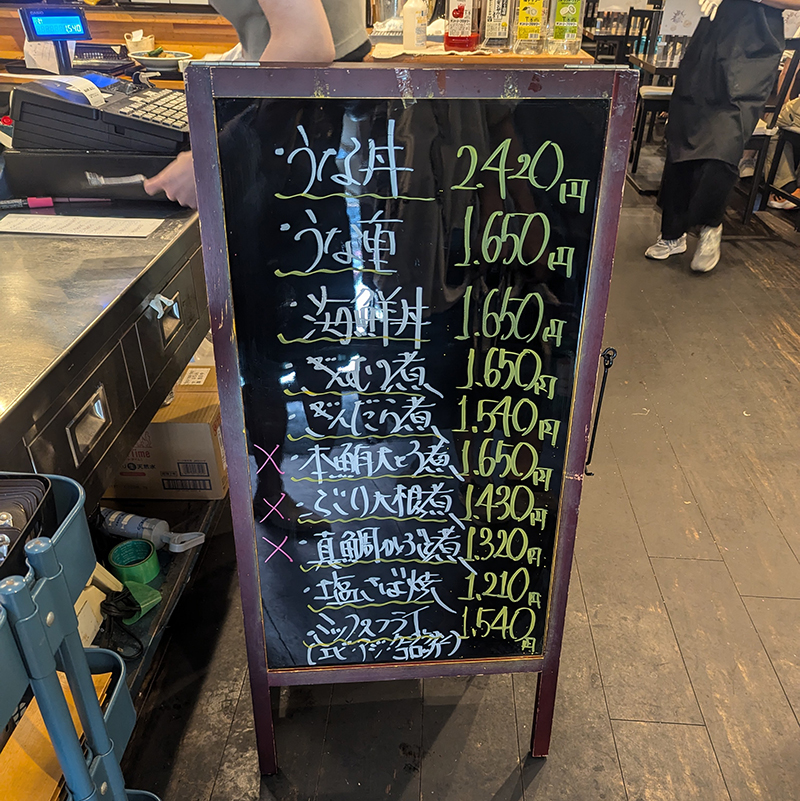 1540
・うな丼 2.420円
・うな重 1.650円
・海鮮丼 1.650円
・ぎんむつ煮 1.650円
・ぎんだら煮 1.540円
×・本鮪大とろ煮 1.650円
×・ぶり大根煮 1.430円
×・真鯛かぶと煮 1.320円
・塩さば焼 1.210円
・ミックスフライ 1.540円
Time